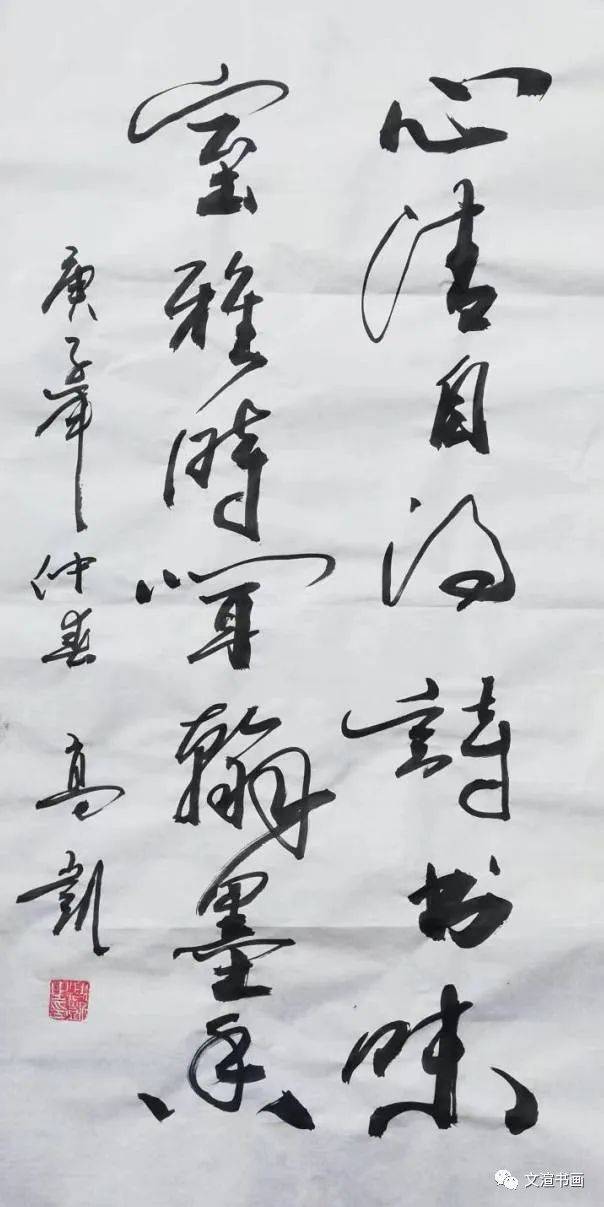 心清自得詩书味
室雅時聞翰墨香
庚子年仲春 高凱
文渲书画